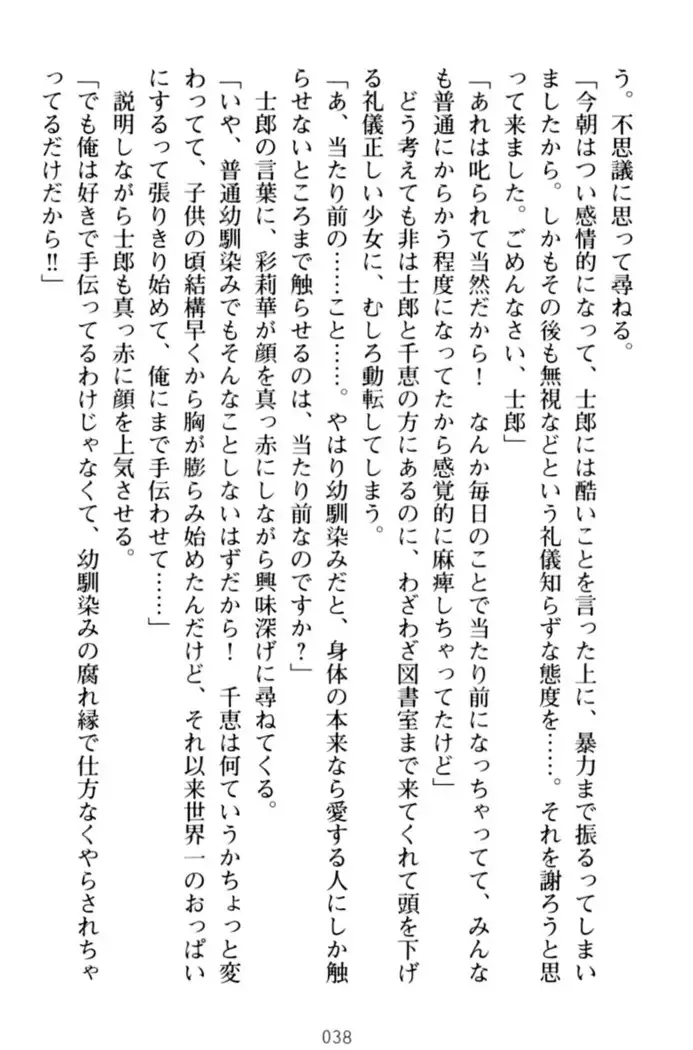 う。不思議に思って尋ねる。
「今朝はつい感情的になって、士郎には酷いことを言った上に、暴力まで振るってしまい
ましたから。しかもその後も無視などという礼儀知らずな態度を……。それを謝ろうと思
って来ました。ごめんなさい、士郎」
「あれは叱られて当然だから！　なんか毎日のことで当たり前になっちゃってて、みんな
も普通にからかう程度になってたから感覚的に麻痺しちゃってたけど」
どう考えても非は士郎と千恵の方にあるのに、わざわざ図書室まで来てくれて頭を下げ
る礼儀正しい少女に、むしろ動転してしまう。
「あ、当たり前の……こと……。やはり幼馴染みだと、身体の本来なら愛する人にしか触
らせないところまで触らせるのは、当たり前なのですか？」
士郎の言葉に、彩莉華が顔を真っ赤にしながら興味深げに尋ねてくる。
「いや、普通幼馴染みでもそんなことしないはずだから！　千恵は何ていうかちょっと変
わってて、子供の頃結構早くから胸が膨らみ始めたんだけど、それ以来世界一のおっぱい
にするって張りきり始めて、俺にまで手伝わせて……」
説明しながら士郎も真っ赤に顔を上気させる。
「でも俺は好きで手伝ってるわけじゃなくて、幼馴染みの腐れ縁で仕方なくやらされちゃ
ってるだけだから!!」
038